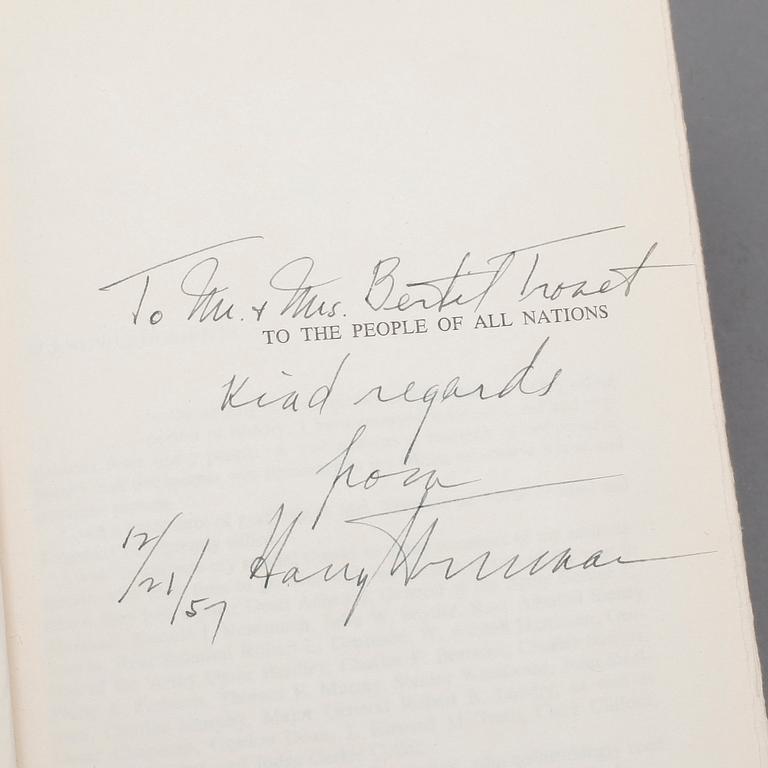 To Mr. & Mrs. Bertil Tronet
TO THE PEOPLE OF ALL NATIONS
Kind regards
from
Harry Truman
12/21/57